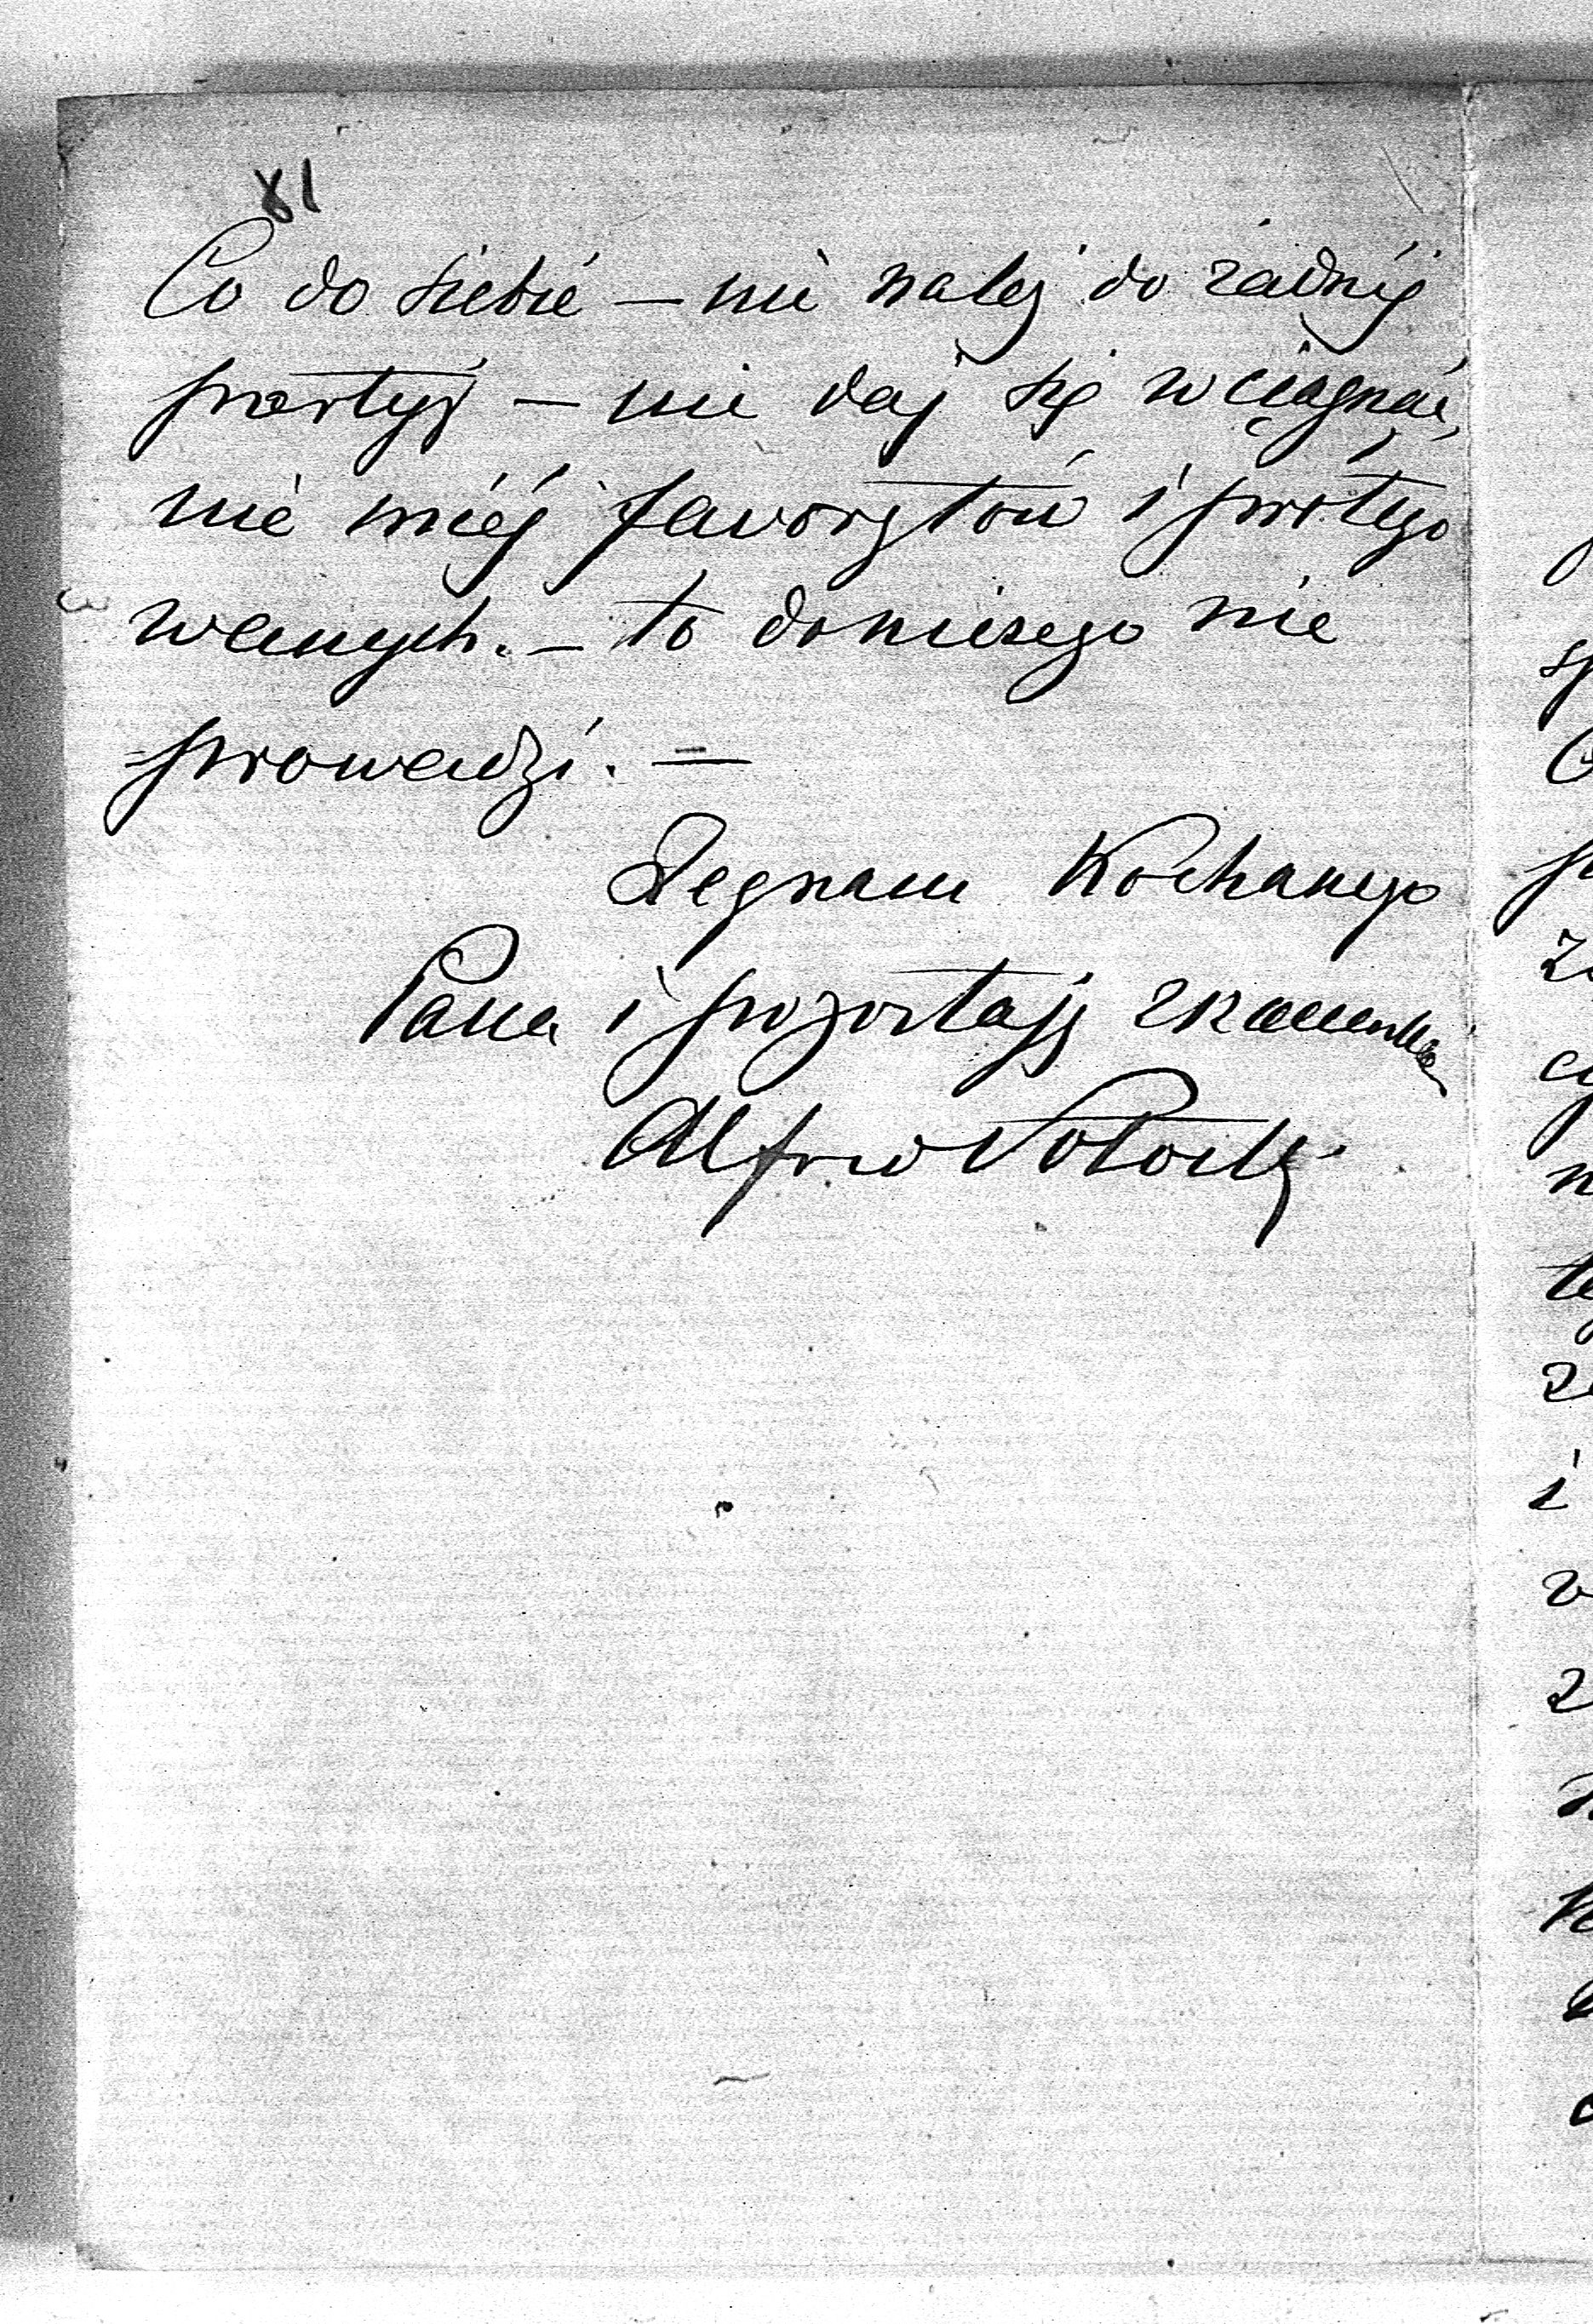 81
Co do siebie — nie należ do żadnéj
partyj — nie daj się wciągnąć,
nie miéj faworytów i protego
wanych. — to doniczego nie
prowadzi. —
Żegnam Kochanego
Pana i pozostaję z szacunkiem
Alfred Potocki